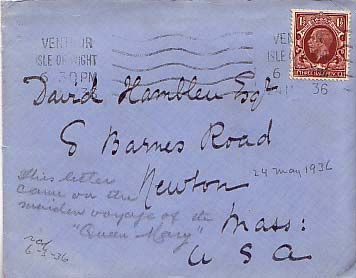 VENTNOR
ISLE OF WIGHT
6 30 PM
VEN
ISLE OF
6
36
1½
THREE HALFPENCE
David Hamblen Esqr
8 Barnes Road
Newton
Mass:
U S A
24 May 1936
This letter
came on the
maiden voyage of the
"Queen Mary"
6-3-36